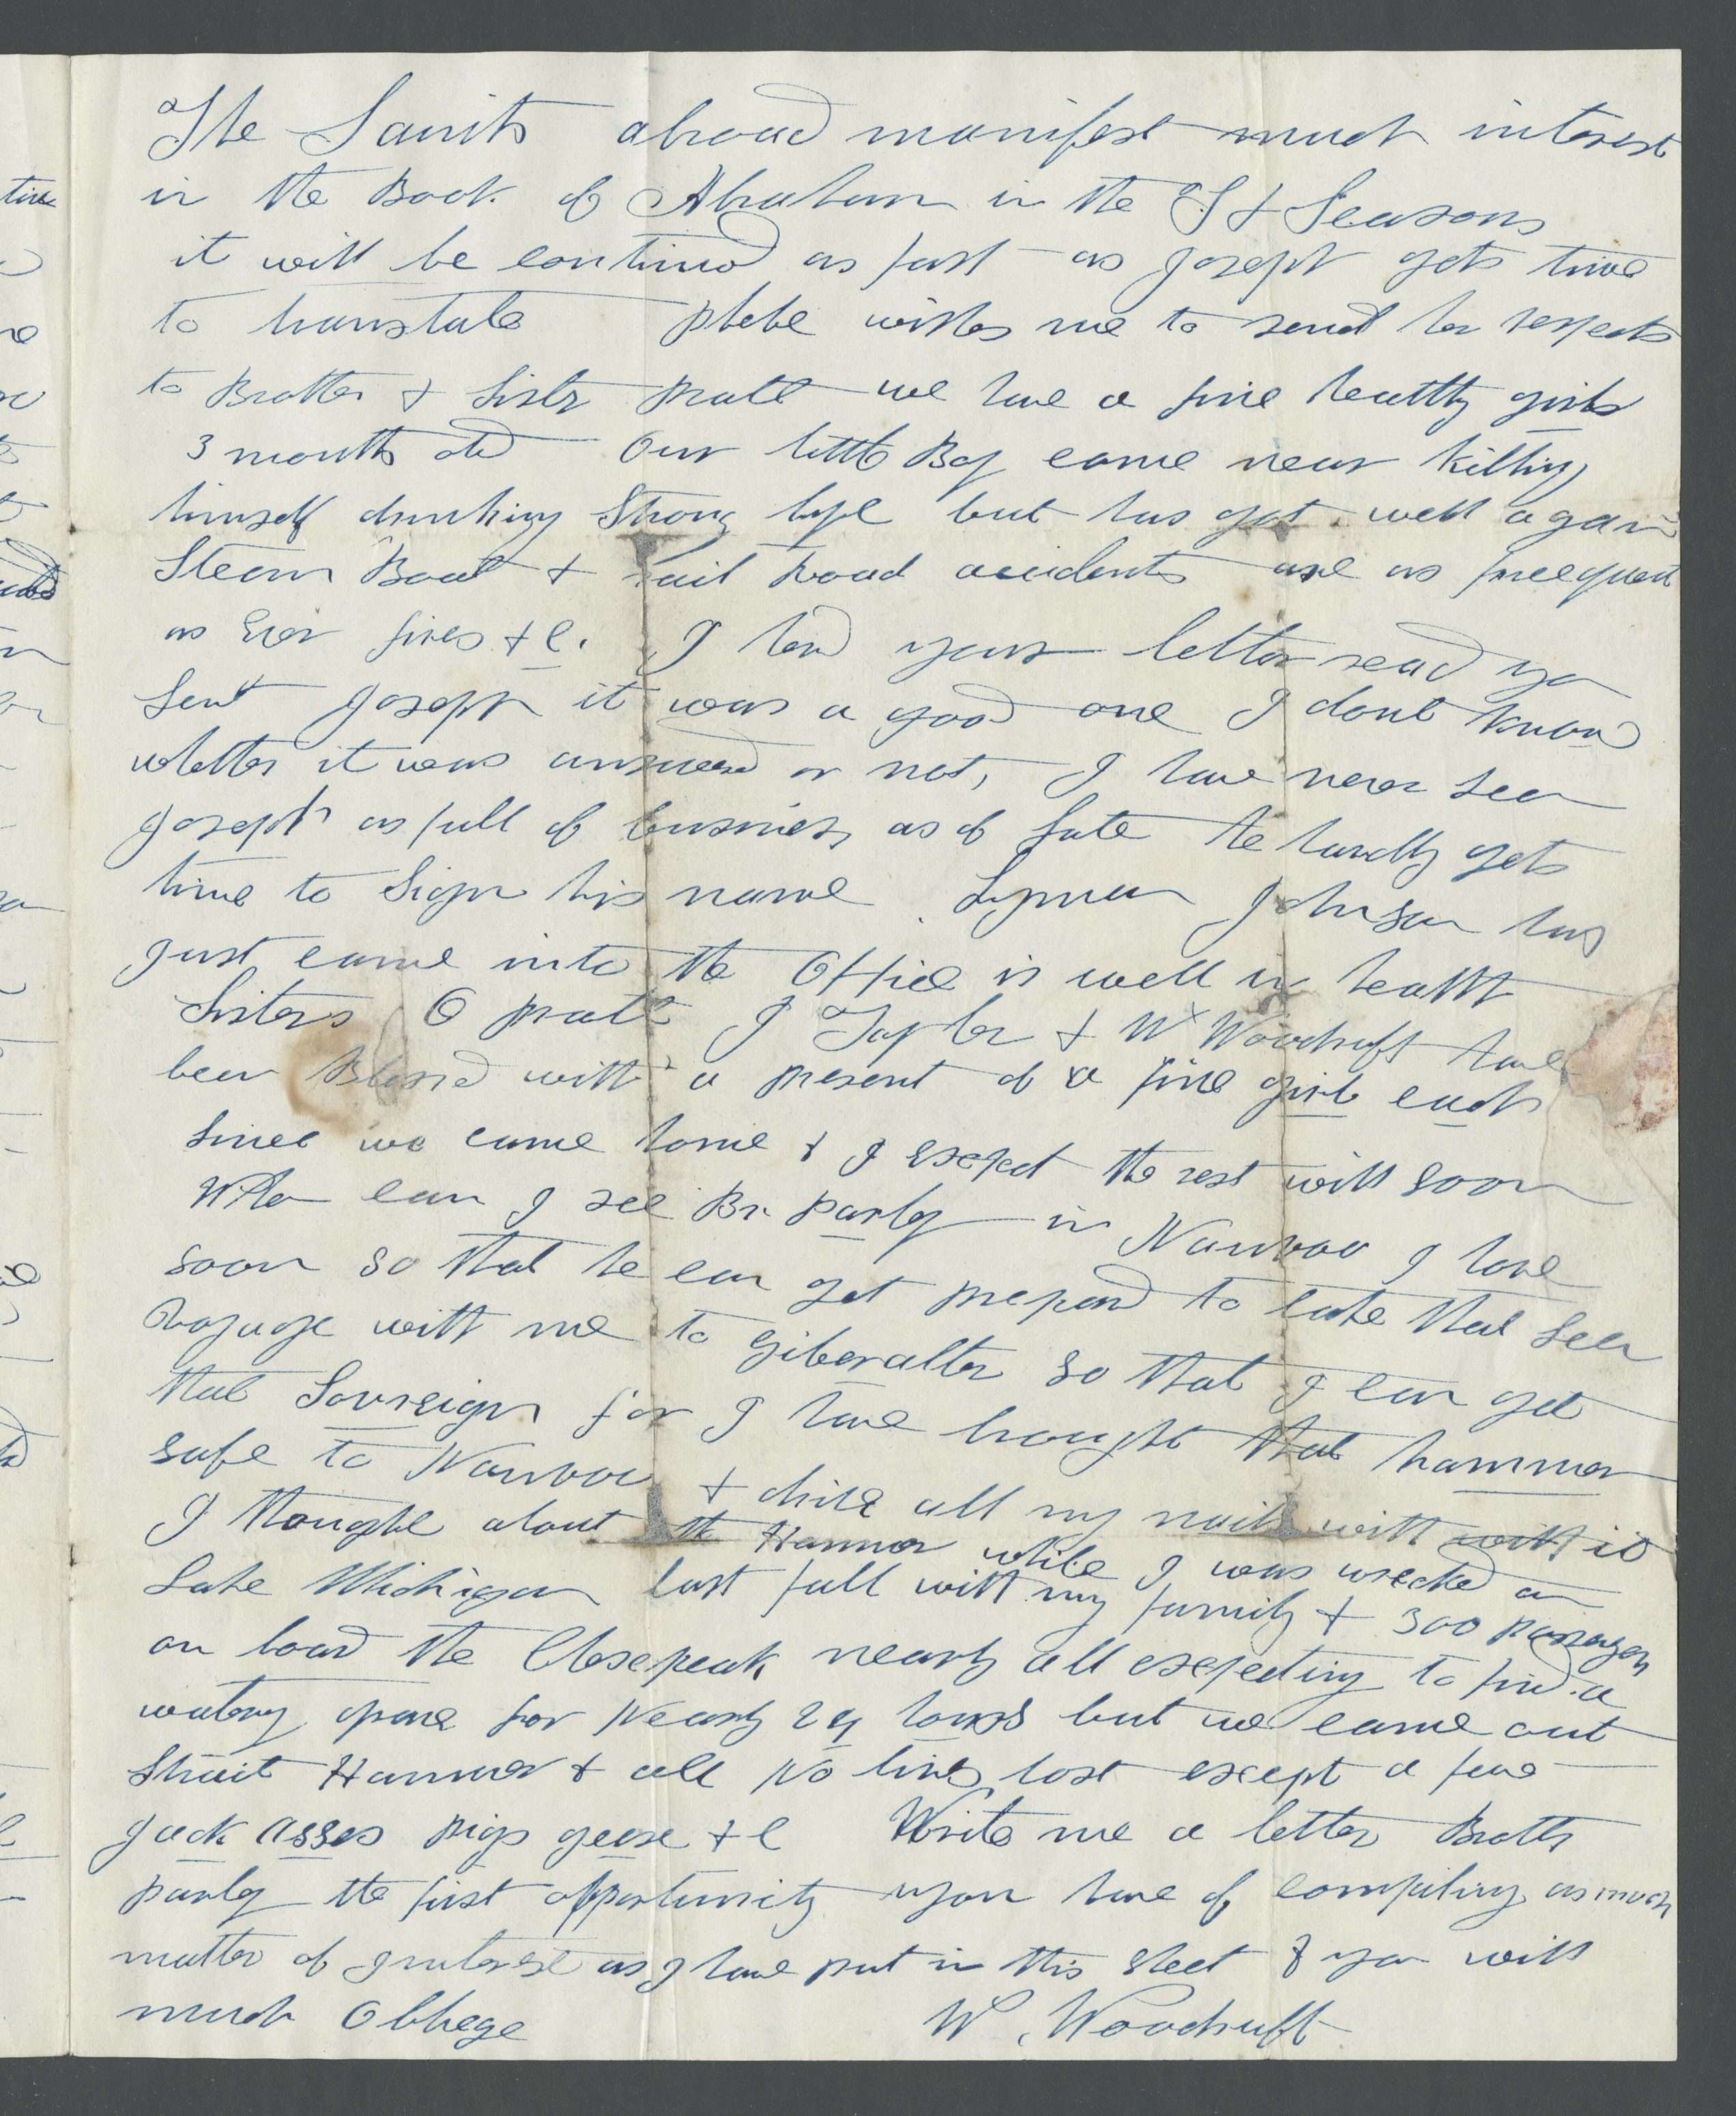 The Saints abroad manifest much interest
in the Book of Abraham in the T & Seasons
it will be continud as fast as Joseph gets time
to translate Phebe wishes me to send her respects
to Brother & Sister Pratt we have a fine healthy girls
3 months old Our little Boy came near killing
himself drinking Strong lye but has got well again
Steam Boat & rail Road accidents are as freequent
as Ever fires &c. I herd your letter read you
Sent Joseph it was a good one I dont know
whether it was answered or not, I have never seen
Joseph as full of business as of late he hardly gets
time to Sign his name Lyman Johnson has
just came into the Office is well in health
Sisters O Pratt J Taylor & W Woodruff have
been Blessd with a present of a fine girl each
since we came home & I expect the rest will soon
When can I see Br Parley in Nauvoo I hope
soon so that he can get prepared to take that Sea
voyage with me to Giberalter so that I can get
that Sovreign for I have brought that hammer
safe to Nauvoo & drive all my nails with with it
I thought about the Hammer while I was wrecked on
Lake Michigan last fall with my family & 300 passengers
on board the Chesepeak nearly all expecting to find a
watery grave for Nearly 24 hours but we came out
Strait Hammer & all No lives lost except a few
Jack Asses pigs geese &c Write me a letter Brother
Parley the first opportunity you have of compiling as much
matter of Interest as I have put in this sheet & you will
much Obliege W. Woodruff